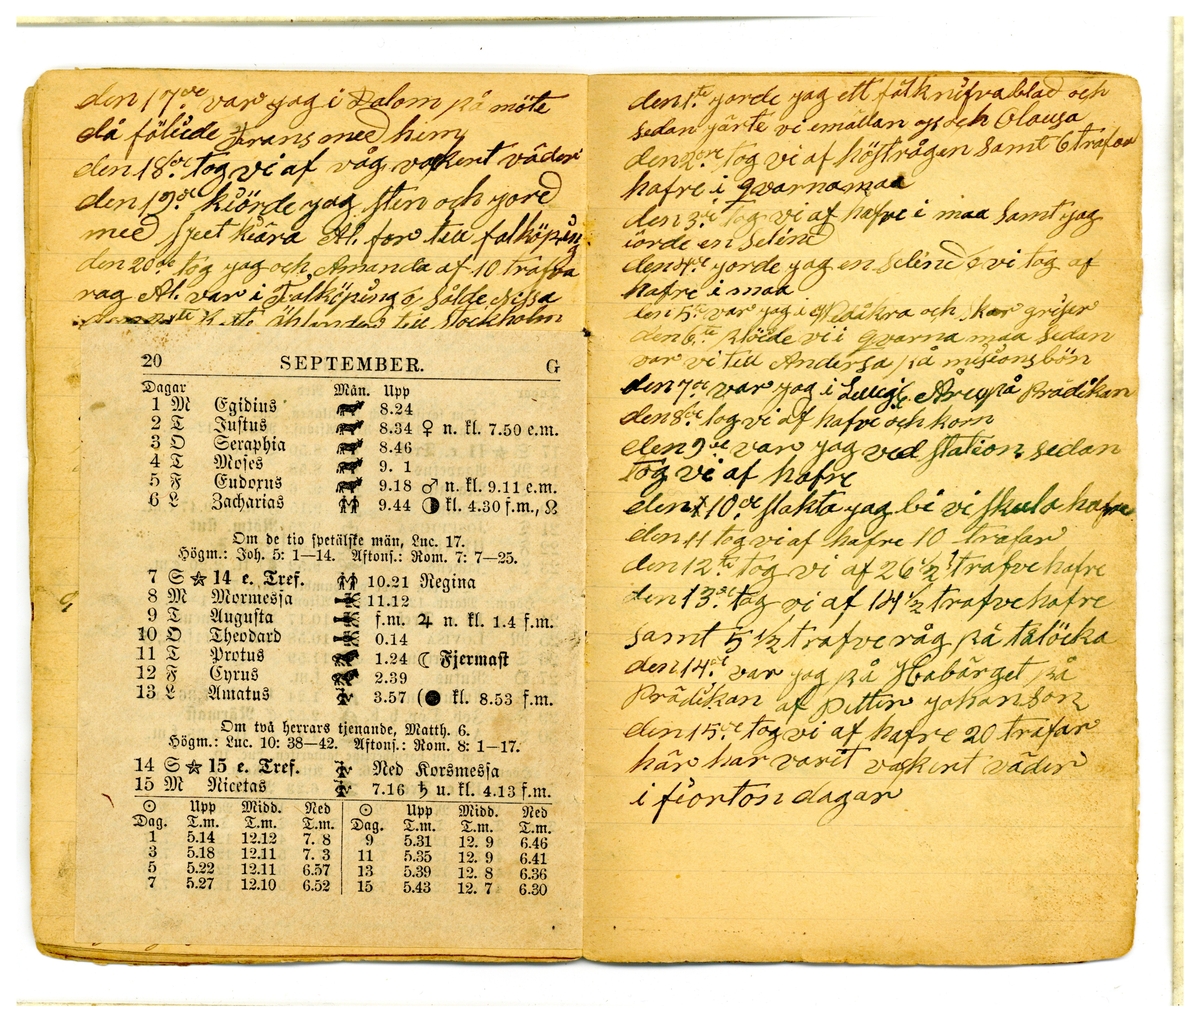 den 17de var jag i Dalom på möte
då fölide Frans med him
den 18de tog vi af råg vakert väder
den 19de kiörde jag sten och gored
med spet kiära Al. for till falköping
den 20de tog jag och Amanda af 10 trafva
rag Al. var i Falköping o sålde nissa
till Stockholm
20 SEPTEMBER. G
Dagar Mån. Upp
1 M Egidius 8.24
2 T Justus 8.34 ♀ n. kl. 7.50 e.m.
3 O Seraphia 8.46
4 T Moses 9. 1
5 F Eudoxus 9.18 ♂ n. kl. 9.11 e.m.
6 L Zacharias 9.44 kl. 4.30 f.m., ☊
Om de tio spetälske män, Luc. 17.
Högm.: Joh. 5: 1—14. Aftons.: Rom. 7: 7—25.
7 S 14 e. Tref. 10.21 Regina
8 M Mormessa 11.12
9 T Augusta f.m. ♃ n. kl. 1.4 f.m.
10 O Theodard 0.14
11 T Protus 1.24 ☾ Fjermast
12 F Cyrus 2.39
13 L Amatus 3.57 (● kl. 8.53 f.m.
Om två herrars tjenande, Matth. 6.
Högm.: Luc. 10: 38—42. Aftons.: Rom. 8: 1—17.
14 S 15 e. Tref. Ned Korsmessa
15 M Nicetas 7.16 ♄ u. kl. 4.13 f.m.
☉ Upp Midd. Ned ☉ Upp Midd. Ned
Dag. T.m. T.m. T.m. Dag. T.m. T.m. T.m.
1 5.14 12.12 7. 8 9 5.31 12. 9 6.46
3 5.18 12.11 7. 3 11 5.35 12. 9 6.41
5 5.22 12.11 6.57 13 5.39 12. 8 6.36
7 5.27 12.10 6.52 15 5.43 12. 7 6.30
den 1ste gorde jag ett fälknifvablad och
sedan gärte vi emällan oss och Olausa
den 2dre tog vi af höstrågen samt 6 trafvar
hafre i qvarnamaa
den 3de tog vi af hafre i maa samt jag
iorde en Selined
den 4de gorde jag en selined o vi tog af
hafre i maa
den 5te var jag i och skar griser
den 6te plöide vi i qvarna maa sedan
var vi till Andersa på misionsbön
den 7de var jag i på Prädikan
den 8de tog vi af hafre och korn
den 9de var jag ved station sedan
tog vi af hafre
den 10de slakta jag bi vi skula hafre
den 11 tog vi af hafre 10 trafar
den 12te tog vi af 26 1/2 trafve hafre
den 13de tog vi af 14 1/2 trafve hafre
samt 5 1/2 trafve råg på talöcka
den 14de var jag på Habärget på
Prädikan af Petter johanson
den 15de tog vi af hafre 20 trafar
här har varit vakert väder
i fiorton dagar